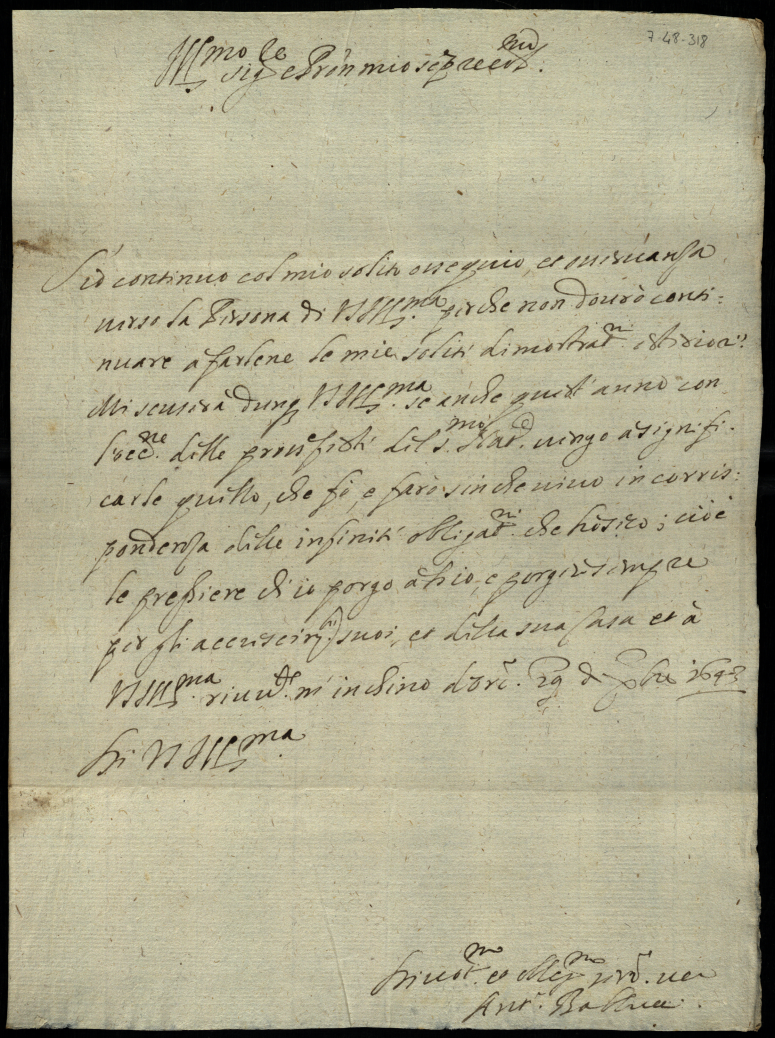 7-48-318
Ill.mo sig.re e Pron mio sẽp re col.mo
S'io continuo col mio solito ossequio, et osseruanza
uerso la Persona di VS Ill.ma perche non dourò conti:
nuare a farlene le mie solite dimostrat.ni
Mi scuserà dunq VS Ill.ma se anche quest'anno con
l'occ.ne delle pross.e feste del s.mo Nat.e uengo a signifi:
carle quello, che fò, e farò sin che uiuo in corris:
pondenza delle infinite obligat.ni che hò seco; cioè
le preghiere ch'io porgo a Dio, e porgerò sempre
per gli accrescim.ti suoi, et della sua Casa et à
VS Ill.ma riuer.te m'inchino 1693
Di VS Ill.ma
Diuot.mo et Oblig.mo
Ant.o